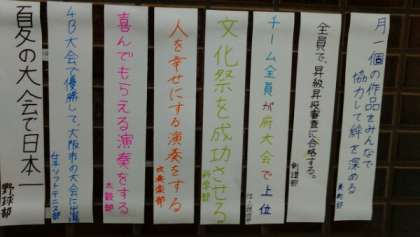 月一個の作品をみんなで
協力して絆を深める
美術部
全員で、昇級昇段審査に合格する。
剣道部
チーム全員が府大会で上位
文化祭を成功させる
科学部
人を幸せにする演奏をする
吹奏楽部
喜んでもらえる演奏をする
太鼓部
4B大会で優勝して、大阪市の大会に出場
女子ソフトテニス部
夏の大会で日本一
野球部